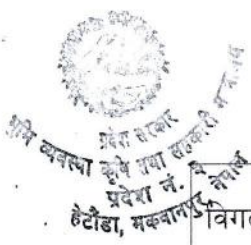 प्रदेश सरकार
भूमि व्यवस्था कृषि तथा सहकारी मन्त्रालय
प्रदेश नं. ३
हेटौंडा, मकवानपुर, नेपाल
विगत